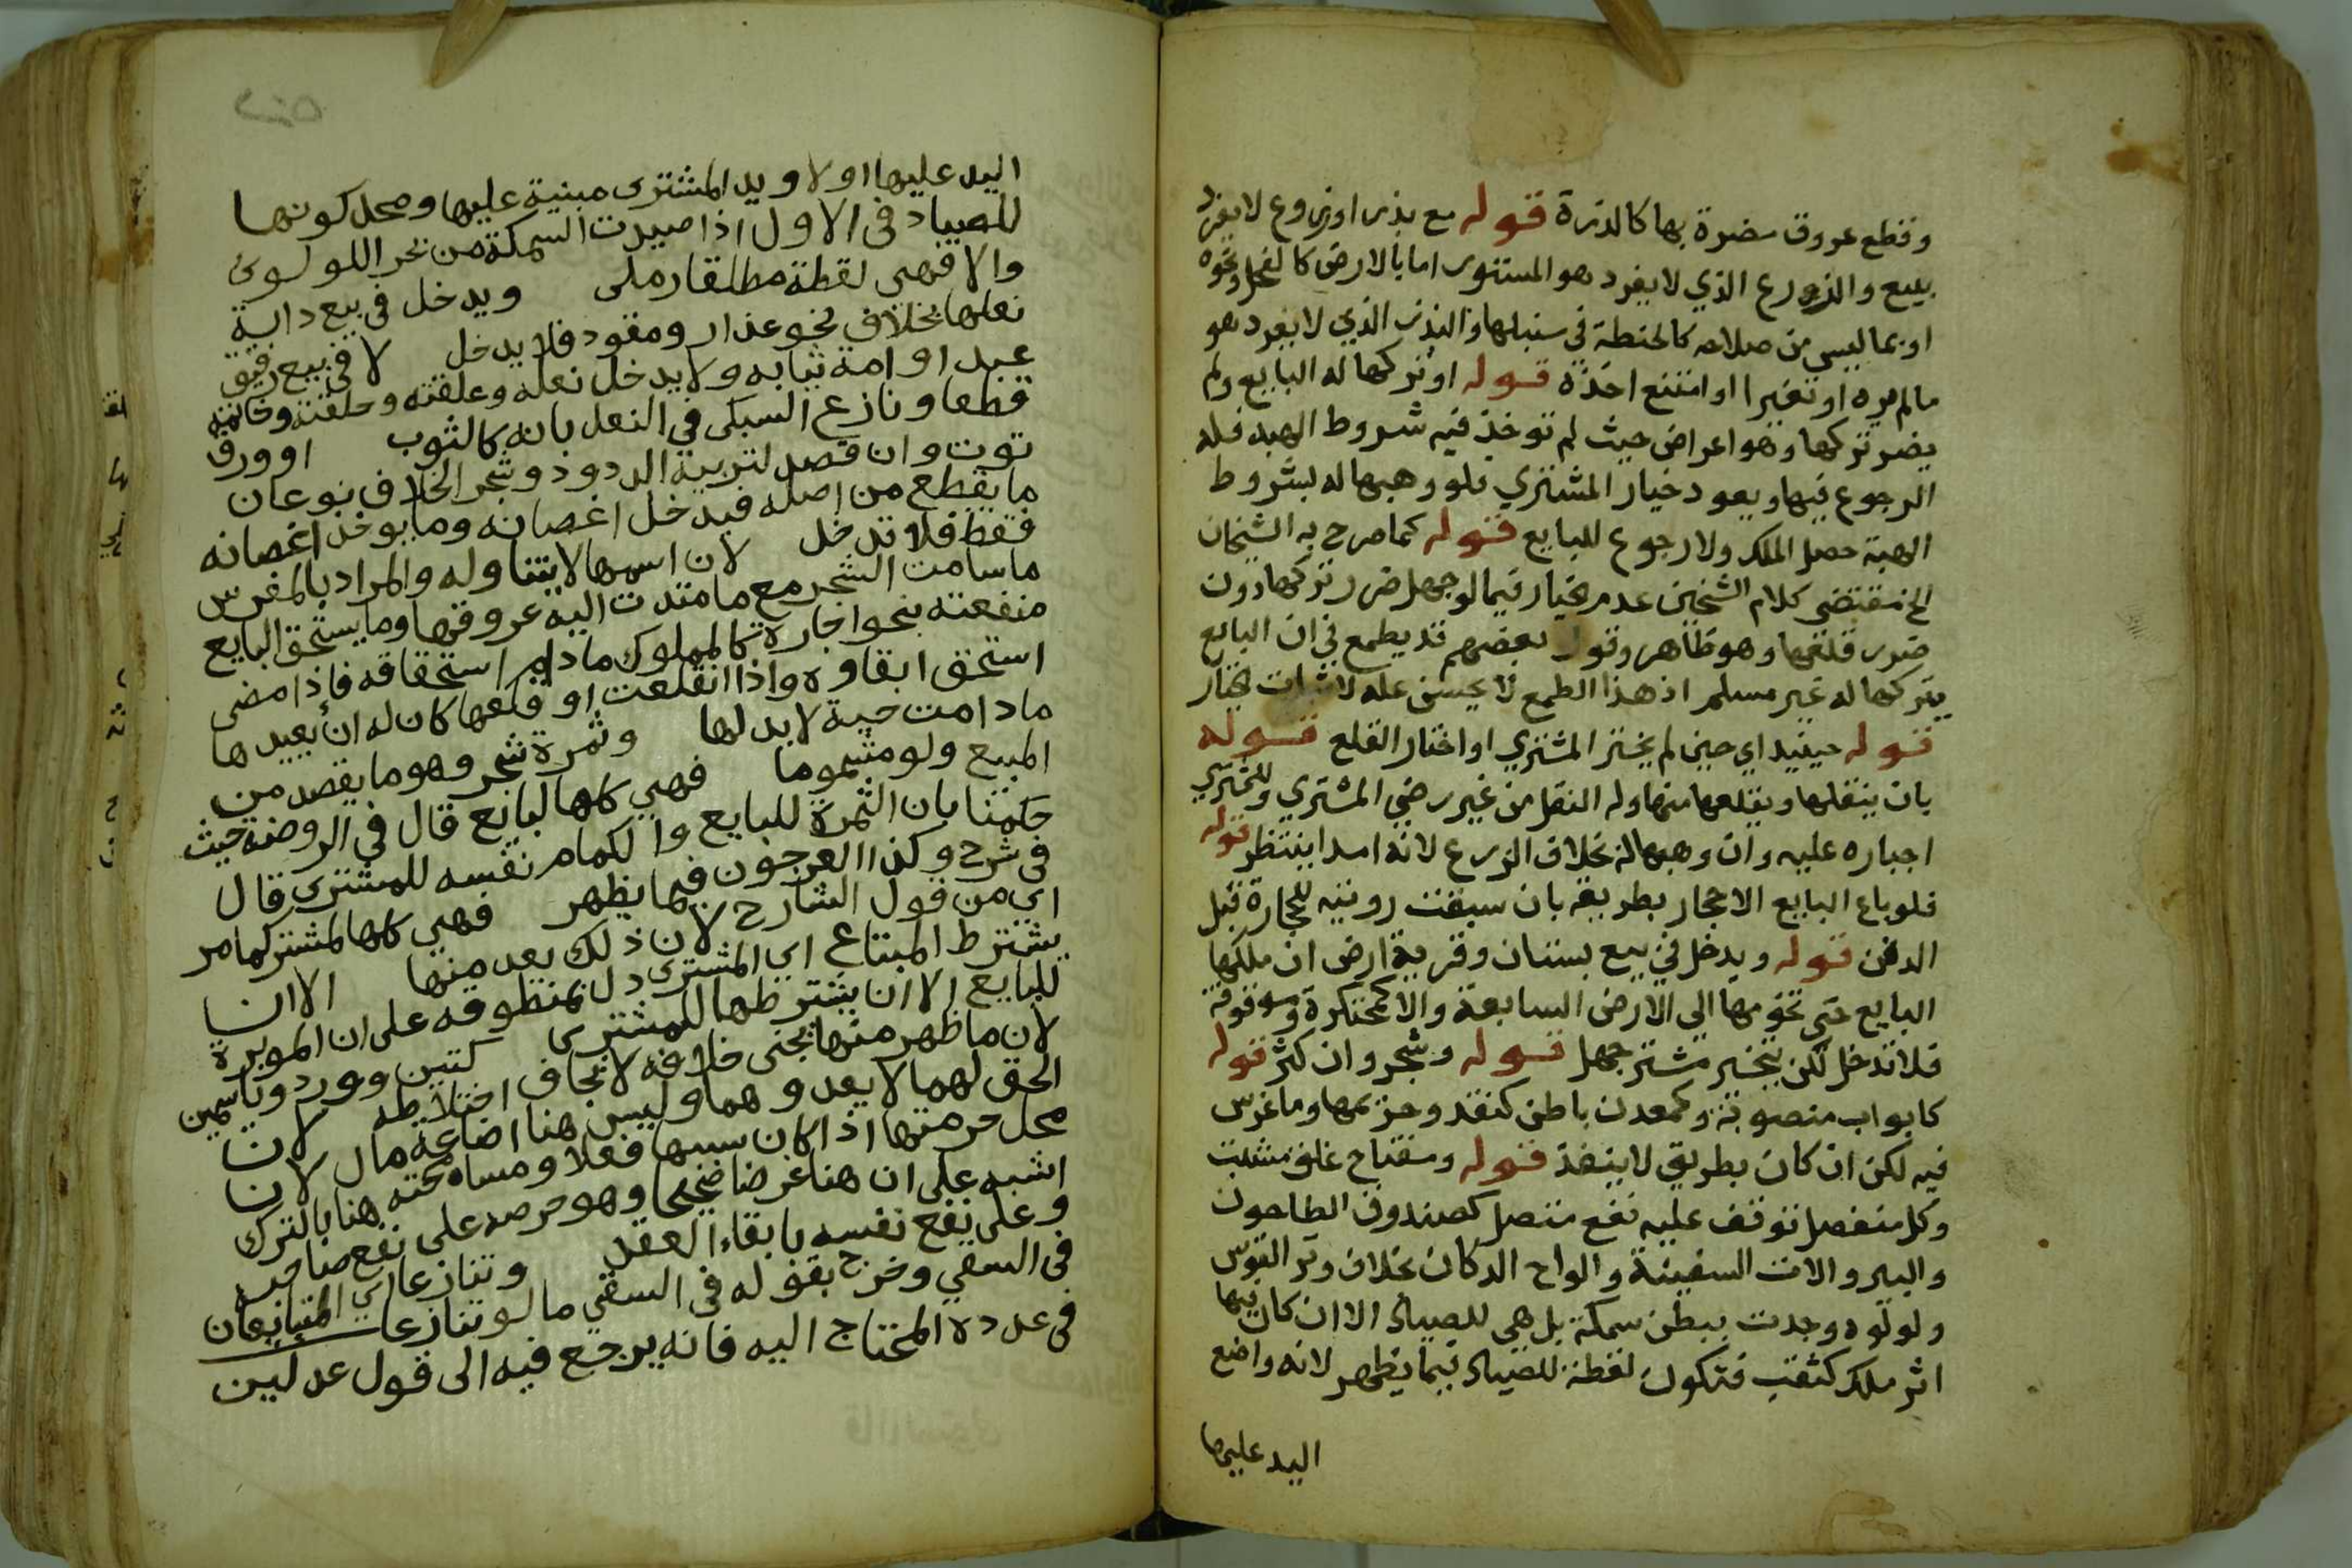 وقطع عروق مضرة بها كالذرة قوله مع بذر او زروع لا يفرد
ببيع والزرع الذي لا يفرد هو المستور اما بالارض كالفجل ونحوه
او بما ليس من صلاحه كالحنطة في سنبلها والبذر الذي لا يفرد هو
ما لم يره او تغيرا او امتنع اخذه قوله او تركها له البايع ولم
يضر تركها وهو اعراض حيث لم توخذ فيه شروط الهبه فله
الرجوع فيها ويعود خيار المشتري فلو وهبها له بشروط
الهبة حصل الملك ولا رجوع للبايع قوله كما صرح به الشيخان
الخ مقتضى كلام الشيخين عدم خيار فيما لو جهل ضرر تركها دون
ضرر قلعها وهو ظاهر وقول بعضهم قد يطمع في ان البايع
يتركها له غير مسلم اذ هذا الطمع لا يحسن علة لاثبات خيار
قوله حينيذ اي حين لم يختر المشتري او اختار القلع قوله
بان ينقلها ويقلعها منها وله النقل من غير رضي المشتري وللمشتري
اجباره عليه وان وهبها له بخلاف الزرع لانه امدا ينتظر قوله
فلو باع البايع الاحجار بطريقه بان سبقت رويته للحجارة قبل
الدفن قوله ويدخل في بيع بستان وقرية ارض ان ملكها
البايع حتى تخومها الى الارض السابعة والا كمحتكرة وموقوفة
فلا تدخل لكن يتخير مشتر جهل قوله وشجر وان كثر قوله
كابواب منصوبة وكمعدن باطن كنقد وحزيمها وما غرس
فيه لكن ان كان بطريق لا ينفذ قوله ومفتاح غلق مثبت
وكل منفصل توقف عليه نفع متصل كصندوق الطاحون
والبير والات السفينة والواح الدكان بخلاف وتر القوس
ولولوه وجدت ببطن سمكة بل هي للصياد الا ان كان بها
اثر ملك كثقب فتكون لقطة للصياد فيما يظهر لانه واضع
اليد عليها
اليد عليها اولا ويد المشترى مبنية عليها ومحل كونها
للصياد في الاول اذا صيدت السمكة من بحر اللولوئ
والا فهي لقطة مطلقا رملى ويدخل في بيع دابة
نعلها بخلاف نحو عذار ومقود فلا يدخل لا في بيع رقيق
عبد او امة ثيابه ولا يدخل نعله وعلقته وحلقته وخاتمه
قطعا ونازع السبكى في النعل بانه كالثوب او ورق
توت وان قصد لتربية الدود وشجر الخلاف نوعان
ما يقطع من اصله فيدخل اغصانه وما يوخذ اغصانه
فقط فلا تدخل لان اسمها لا يتناوله والمراد بالمغرس
ما سامت الشجر مع ما متدت اليه عروقها وما يستحق البايع
منفعته بنحو اجارة كالمملوك ما دام استحقاقه فإذا مضى
استحق ابقاوه واذا انقلعت او قلعها كان له ان يعيدها
ما دامت حية لا بدلها وثمرة شجر وهو ما يقصد من
المبيع ولو مشموما فهي كلها لبايع قال في الروضة حيث
حكمنا بان الثمرة للبايع والكمام نفسه للمشترى قال
في شرح وكذا العرجون فيما يظهر فهي كلها لمشتر كما مر
اي من قول الشارح لان ذلك يعد منها الا ان
يشترط المبتاع اي المشترى دل بمنظوقه على ان الموبرة
للبايع الا ان يشترطها للمشترى كتين وورد وياسمين
لان ما ظهر منها يجنى خلافه لا يخاف اختلاطه لان
الحق لهما لا يعدوهما وليس هنا اضاعة مال لان
محل حرمتها اذا كان سببها فعلا ومسامحته هنا بالترك
اشبه على ان هنا غرضا صحيحا وهو حرصه على نفع صاحبه
وعلى نفع نفسه بابقاء العقد وتنازعا اي المتبايعان
في السقي وخرج بقوله في السقي ما لو تنازعا
في عدده المحتاج اليه فانه يرجع فيه الى قول عدلين